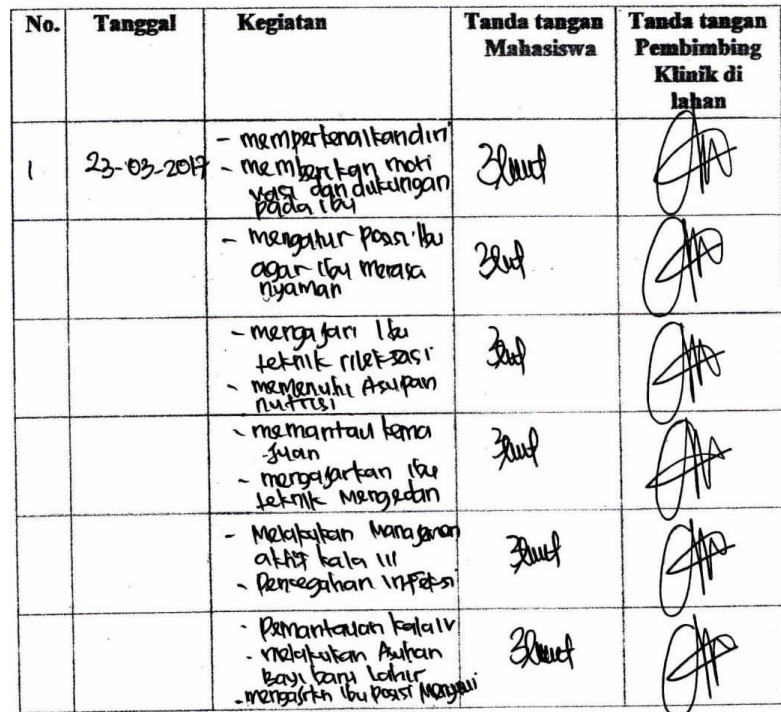 No. Tanggal Kegiatan Tanda tangan Tanda tangan
Mahasiswa Pembimbing
Klinik di
lahan
1 23-03-2017 - memperkenalkan diri
- memberikan moti
vasi dan dukungan
pada ibu
- mengatur posisi ibu
agar ibu merasa
nyaman
- mengajari Ibu
teknik rileksasi
- memenuhi Asupan
nutrisi
- memantau kema
juan
- mengajarkan ibu
teknik Mengedan
- Melakukan Manajemen
aktif kala III
- Pencegahan Infeksi
- Pemantauan kala IV
- melakukan Asuhan
bayi baru lahir
- mengajarkn ibu posisi Menyusui